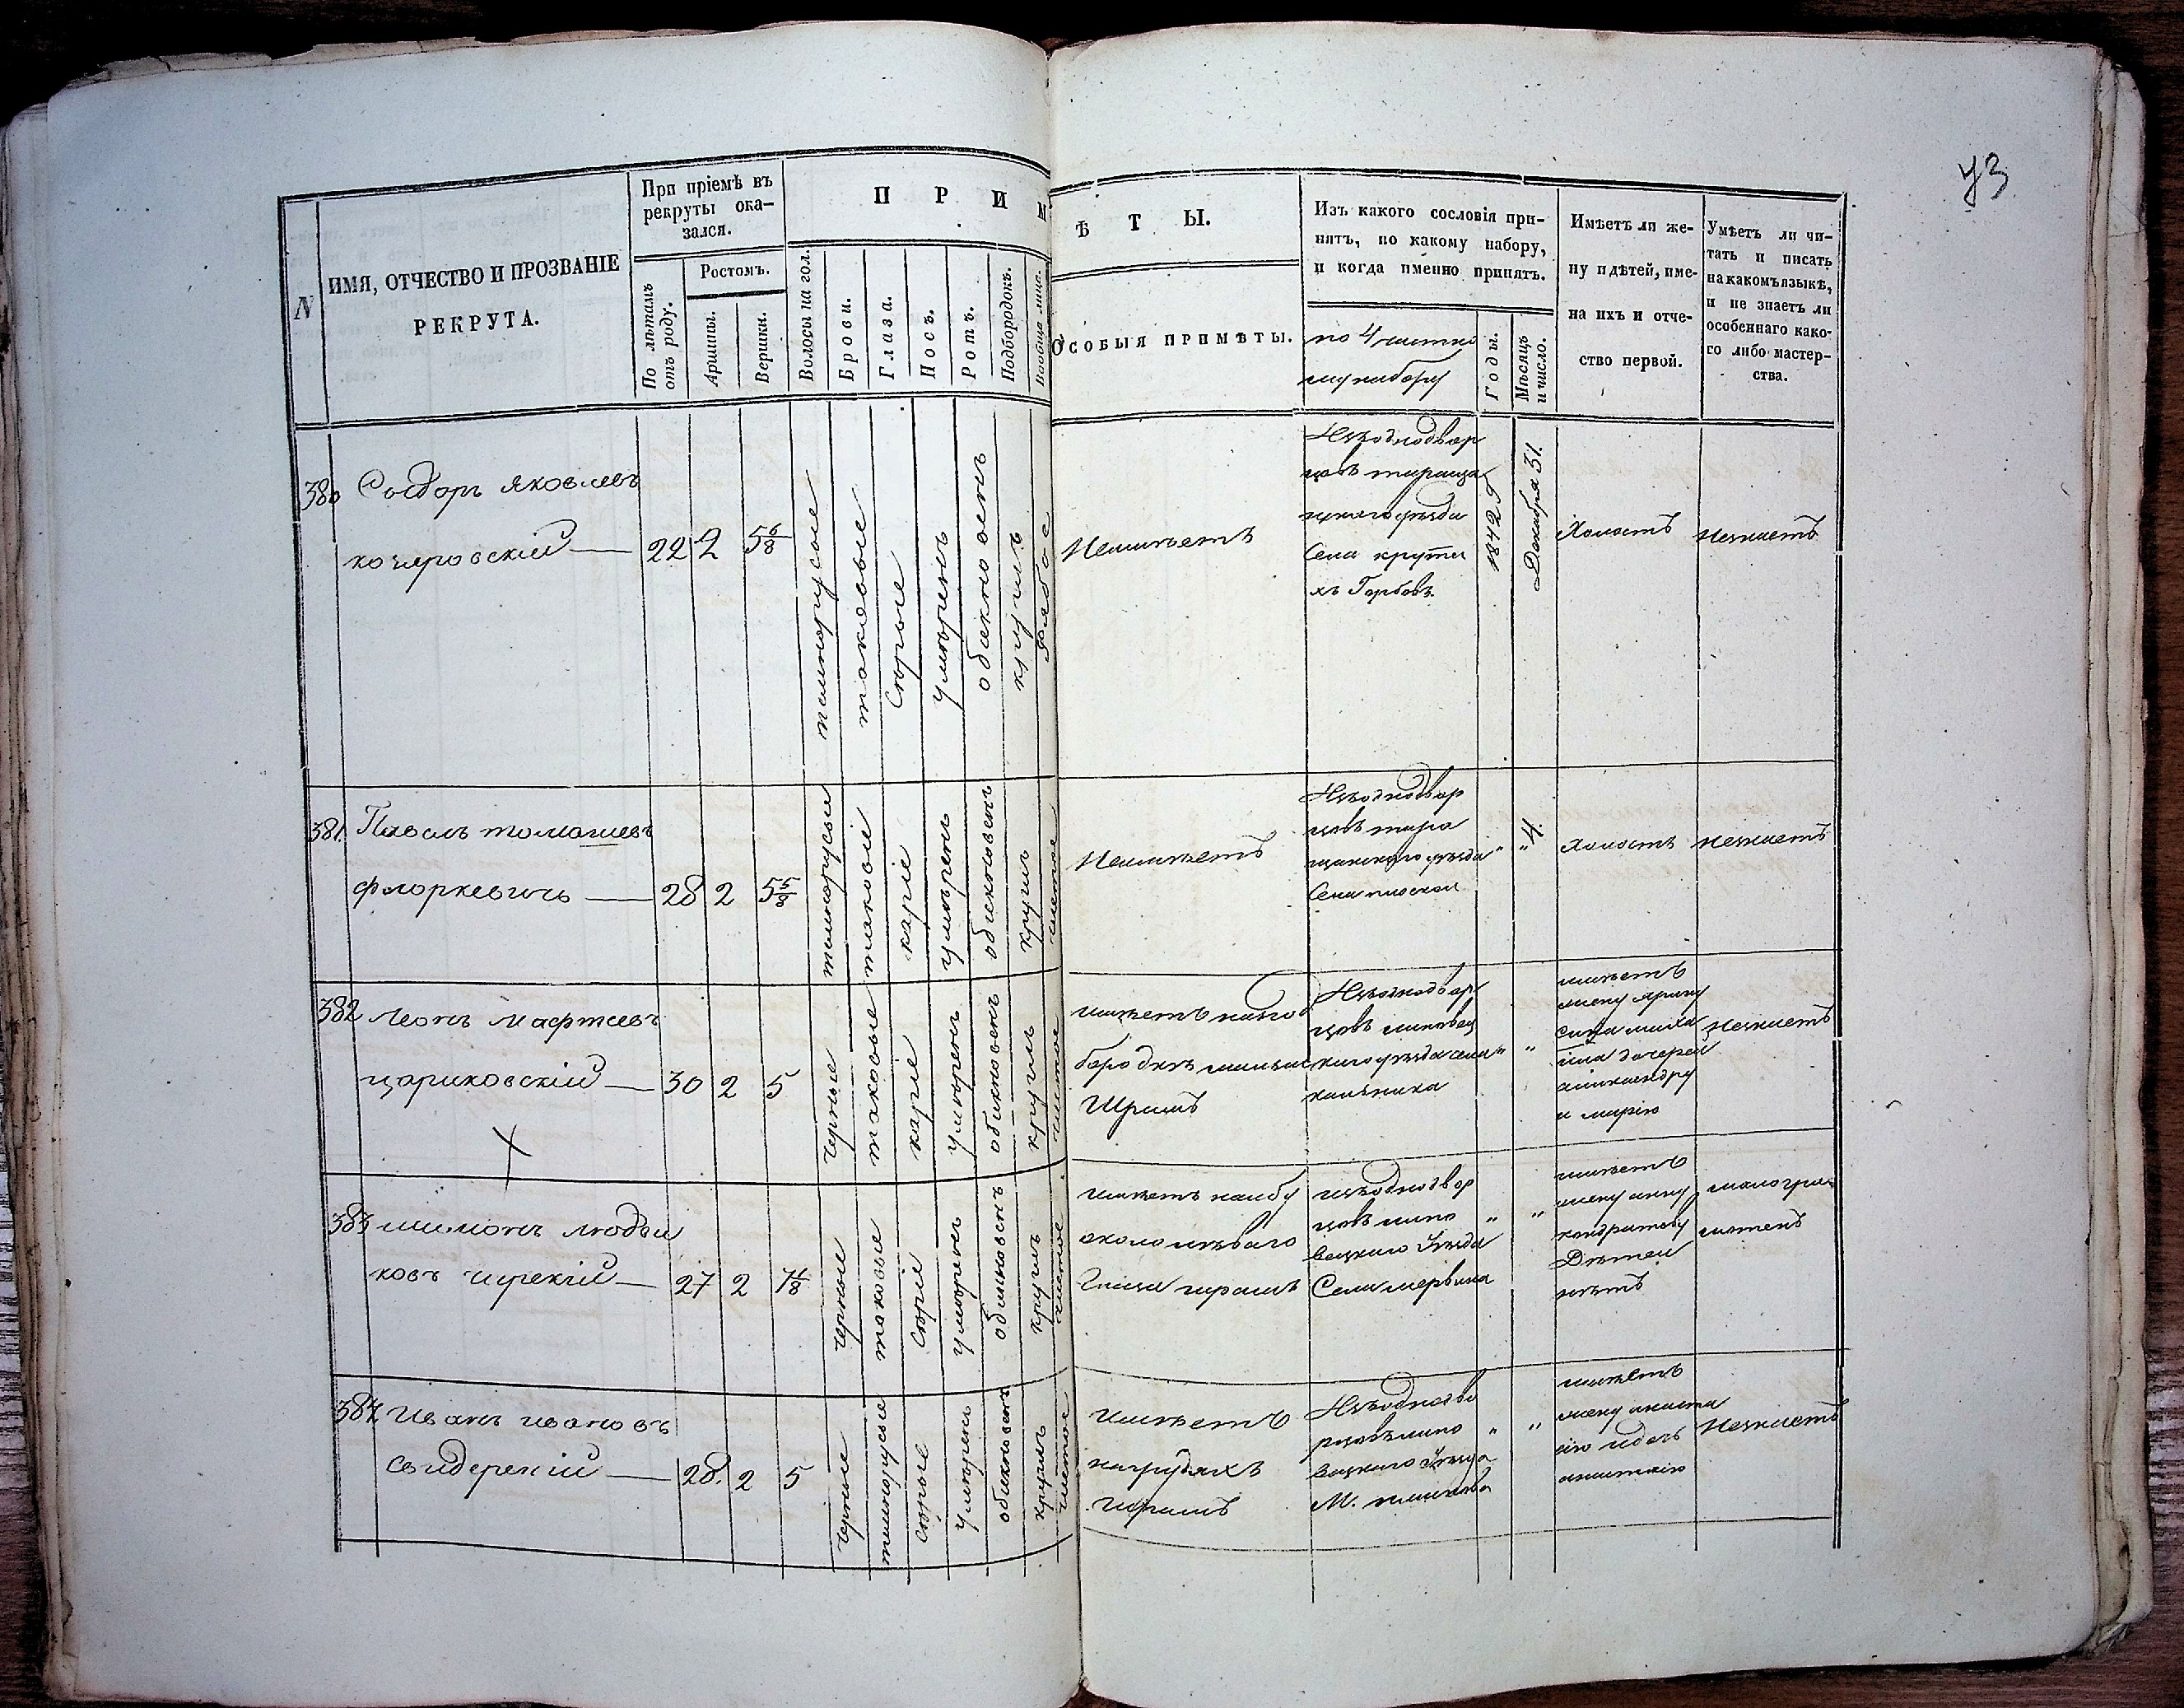 43
N
ИМЯ, ОТЧЕСТВО И ПРОЗВАНІЕ
РЕКРУТА.
При пріемѣ въ
рекруты ока-
зался.
По лѣтамъ
отъ роду.
Ростомъ.
Аршины.
Вершки.
П Р И М
Волосы на гол.
Брови.
Глаза.
Носъ.
Ротъ.
Подбородокъ.
Вообще лица.
Ѣ Т Ы.
ОСОБЫЯ ПРИМѢТЫ.
Изъ какого сословія при-
нятъ, по какому набору,
и когда именно принятъ.
по 4 частно
му набору
Годы.
Мѣсяцъ
и число.
Имѣетъ ли же-
ну и дѣтей, име-
на ихъ и отче-
ство первой.
Умѣетъ ли чи-
тать и писать
на какомъ языкѣ,
и не знаетъ ли
особеннаго како-
го либо мастер-
ства.
380
Сыдоръ Яковлевъ
кочеровскій
22
2
5 6/8
темнорусые
таковые
Серые
Умѣренъ
обыкновенъ
круглъ
Рябое
Неимѣетъ
Изъоднодвор
цовъ тараща
нскаго уѣзда
Села круты
хъ Горбовъ
1842
Декабря 31.
Холостъ
Незнаетъ
381.
Павелъ томашевъ
флоркевичъ
28
2
5 5/8
темнорусые
таковые
каріе
умѣренъ
обыкновенъ
круглъ
чистое
Неимѣетъ
Изъоднодвор
цовъ тара
щанскаго уѣзда
Села плоской
"
" 4.
Холостъ
Незнаетъ
382
Леонъ Мафтеевъ
цариковскій
30
2
5
Черные
таковые
каріе
Умѣренъ
обыкновенъ
круглъ
чистое
имѣетъ на
бородкѣ
Шрамъ
Изъоднодвор
цовъ липовец
каго уѣзда села
кальника
"
"
имѣетъ
жену
сына миха
ила дочерей
александру
и марію
Незнаетъ
383
шимонъ людви
ковъ
27
2
черные
таковые
Серые
Умѣренъ
обыкновенъ
круглъ
чистое
имѣетъ на лбу
около лѣваго
Глаза шрамъ
изъоднодвор
цовъ липо
вецкаго Уѣзда
Села
"
"
имѣетъ
жену анну
кондратову
Дѣтей
нѣтъ
малогра
мотенъ
384
Иванъ ивановъ
Свидерскій
28.
2
5
Черные
темнорусые
Серые
Умѣренъ
обыкновенъ
круглъ
чистое
имѣетъ
нагрудяхъ
шрамъ
Изъоднодво
рцовъ липо
вецкаго Уѣзда
М.
"
"
имѣетъ
жену
Незнаетъ